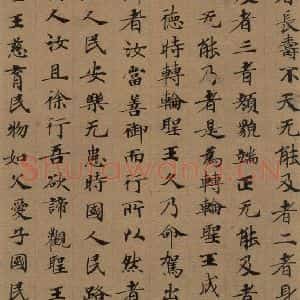 者長壽不夭无能及者二者身
及者三者顏貌端正无能及者
无能及者是為轉輪聖王成
德時轉輪聖王久乃命駕出
者汝當善御而行所以然者
人民安樂无患時國人民路
人汝且徐行吾欲諦觀聖王
王慈育民物如父愛子國民
Shufawang.CN